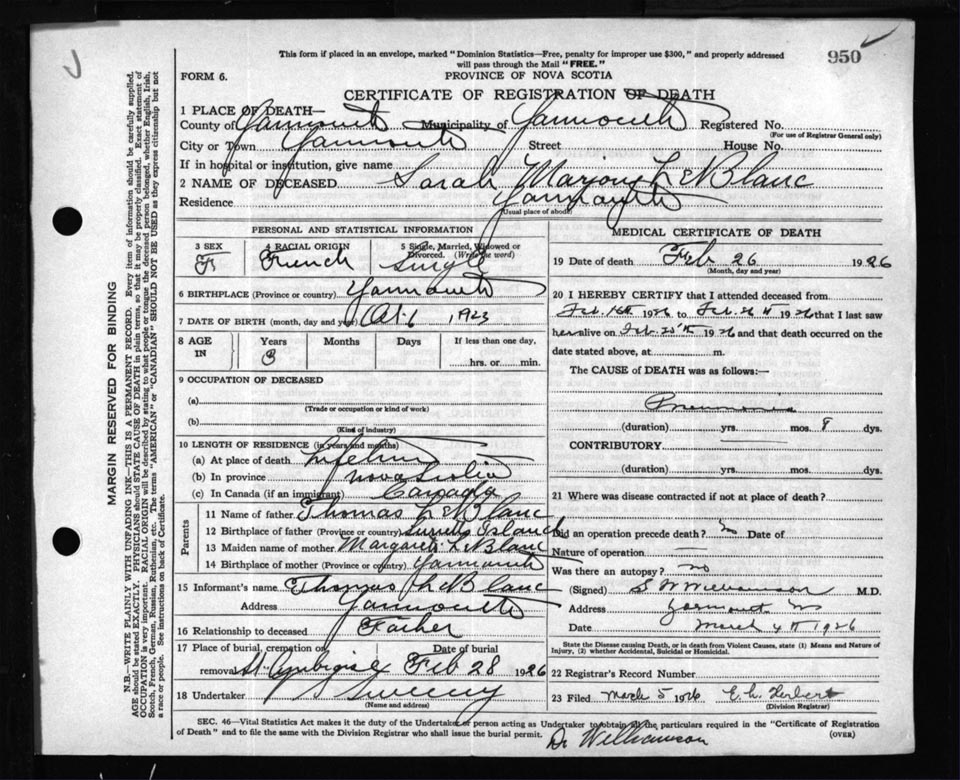 This form if placed in an envelope, marked "Dominion Statistics—Free, penalty for improper use $300," and properly addressed
will pass through the Mail "FREE."
950
FORM 6.
PROVINCE OF NOVA SCOTIA
CERTIFICATE OF REGISTRATION OF DEATH
1 PLACE OF DEATH—
County of Yarmouth Municipality of Yarmouth Registered No.
(For use of Registrar General only)
City or Town Yarmouth Street House No.
If in hospital or institution, give name
2 NAME OF DECEASED Sarah Marjorie LeBlanc
Residence Yarmouth
(Usual place of abode)
PERSONAL AND STATISTICAL INFORMATION
3 SEX 4 RACIAL ORIGIN 5 Single, Married, Widowed or
Divorced. (Write the word)
F French Single
6 BIRTHPLACE (Province or country) Yarmouth
7 DATE OF BIRTH (month, day and year) Oct. 6 1923
8 AGE IN Years Months Days If less than one day,
3 hrs. or min.
9 OCCUPATION OF DECEASED
(a)
(Trade or occupation or kind of work)
(b)
(Kind of industry)
10 LENGTH OF RESIDENCE (in years and months)
(a) At place of death Lifetime
(b) In province Nova Scotia
(c) In Canada (if an immigrant) Canada
Parents
11 Name of father Thomas LeBlanc
12 Birthplace of father (Province or country) Island
13 Maiden name of mother Margaret LeBlanc
14 Birthplace of mother (Province or country) Yarmouth
15 Informant's name Thomas LeBlanc
Address Yarmouth
16 Relationship to deceased Father
17 Place of burial, cremation or Date of burial
removal St. Ambroise Feb 28 1926
18 Undertaker Sweeny
(Name and address)
MEDICAL CERTIFICATE OF DEATH
19 Date of death Feb 26 1926
(Month, day and year)
20 I HEREBY CERTIFY that I attended deceased from
Feb. 1926 to Feb. 26th 1926 that I last saw
her alive on Feb. 25th 1926 and that death occurred on
date stated above, at m.
The CAUSE of DEATH was as follows:—
Pneumonia
(duration) yrs. mos. 8 dys.
CONTRIBUTORY
(duration) yrs. mos. dys.
21 Where was disease contracted if not at place of death?
Did an operation precede death? No Date of
Nature of operation —
Was there an autopsy? No
(Signed) S W Williamson M.D.
Address Yarmouth NS
Date March 4th 1926
State the Disease causing Death, or in death from Violent Causes, state (1) Means and Nature of
Injury, (2) whether Accidental, Suicidal or Homicidal.
22 Registrar's Record Number
23 Filed March 5 1926 E. L. Herbert
(Division Registrar)
SEC. 46—Vital Statistics Act makes it the duty of the Undertaker or person acting as Undertaker to obtain all the particulars required in the "Certificate of Registration
of Death" and to file the same with the Division Registrar who shall issue the burial permit. (OVER)
Dr Williamson
MARGIN RESERVED FOR BINDING
N.B.—WRITE PLAINLY WITH UNFADING INK—THIS IS A PERMANENT RECORD. Every item of information should be carefully supplied.
AGE should be stated EXACTLY. PHYSICIANS should STATE CAUSE OF DEATH in plain terms, so that it may be properly classified. Exact statement of
OCCUPATION is very important. RACIAL ORIGIN will be described by stating to what people or tongue the deceased person belonged, whether English, Irish,
Scotch, French, German, Russian, Ruthenian, etc. The terms "AMERICAN" or "CANADIAN" SHOULD NOT BE USED as they express citizenship but not
a race or people. See instructions on back of Certificate.